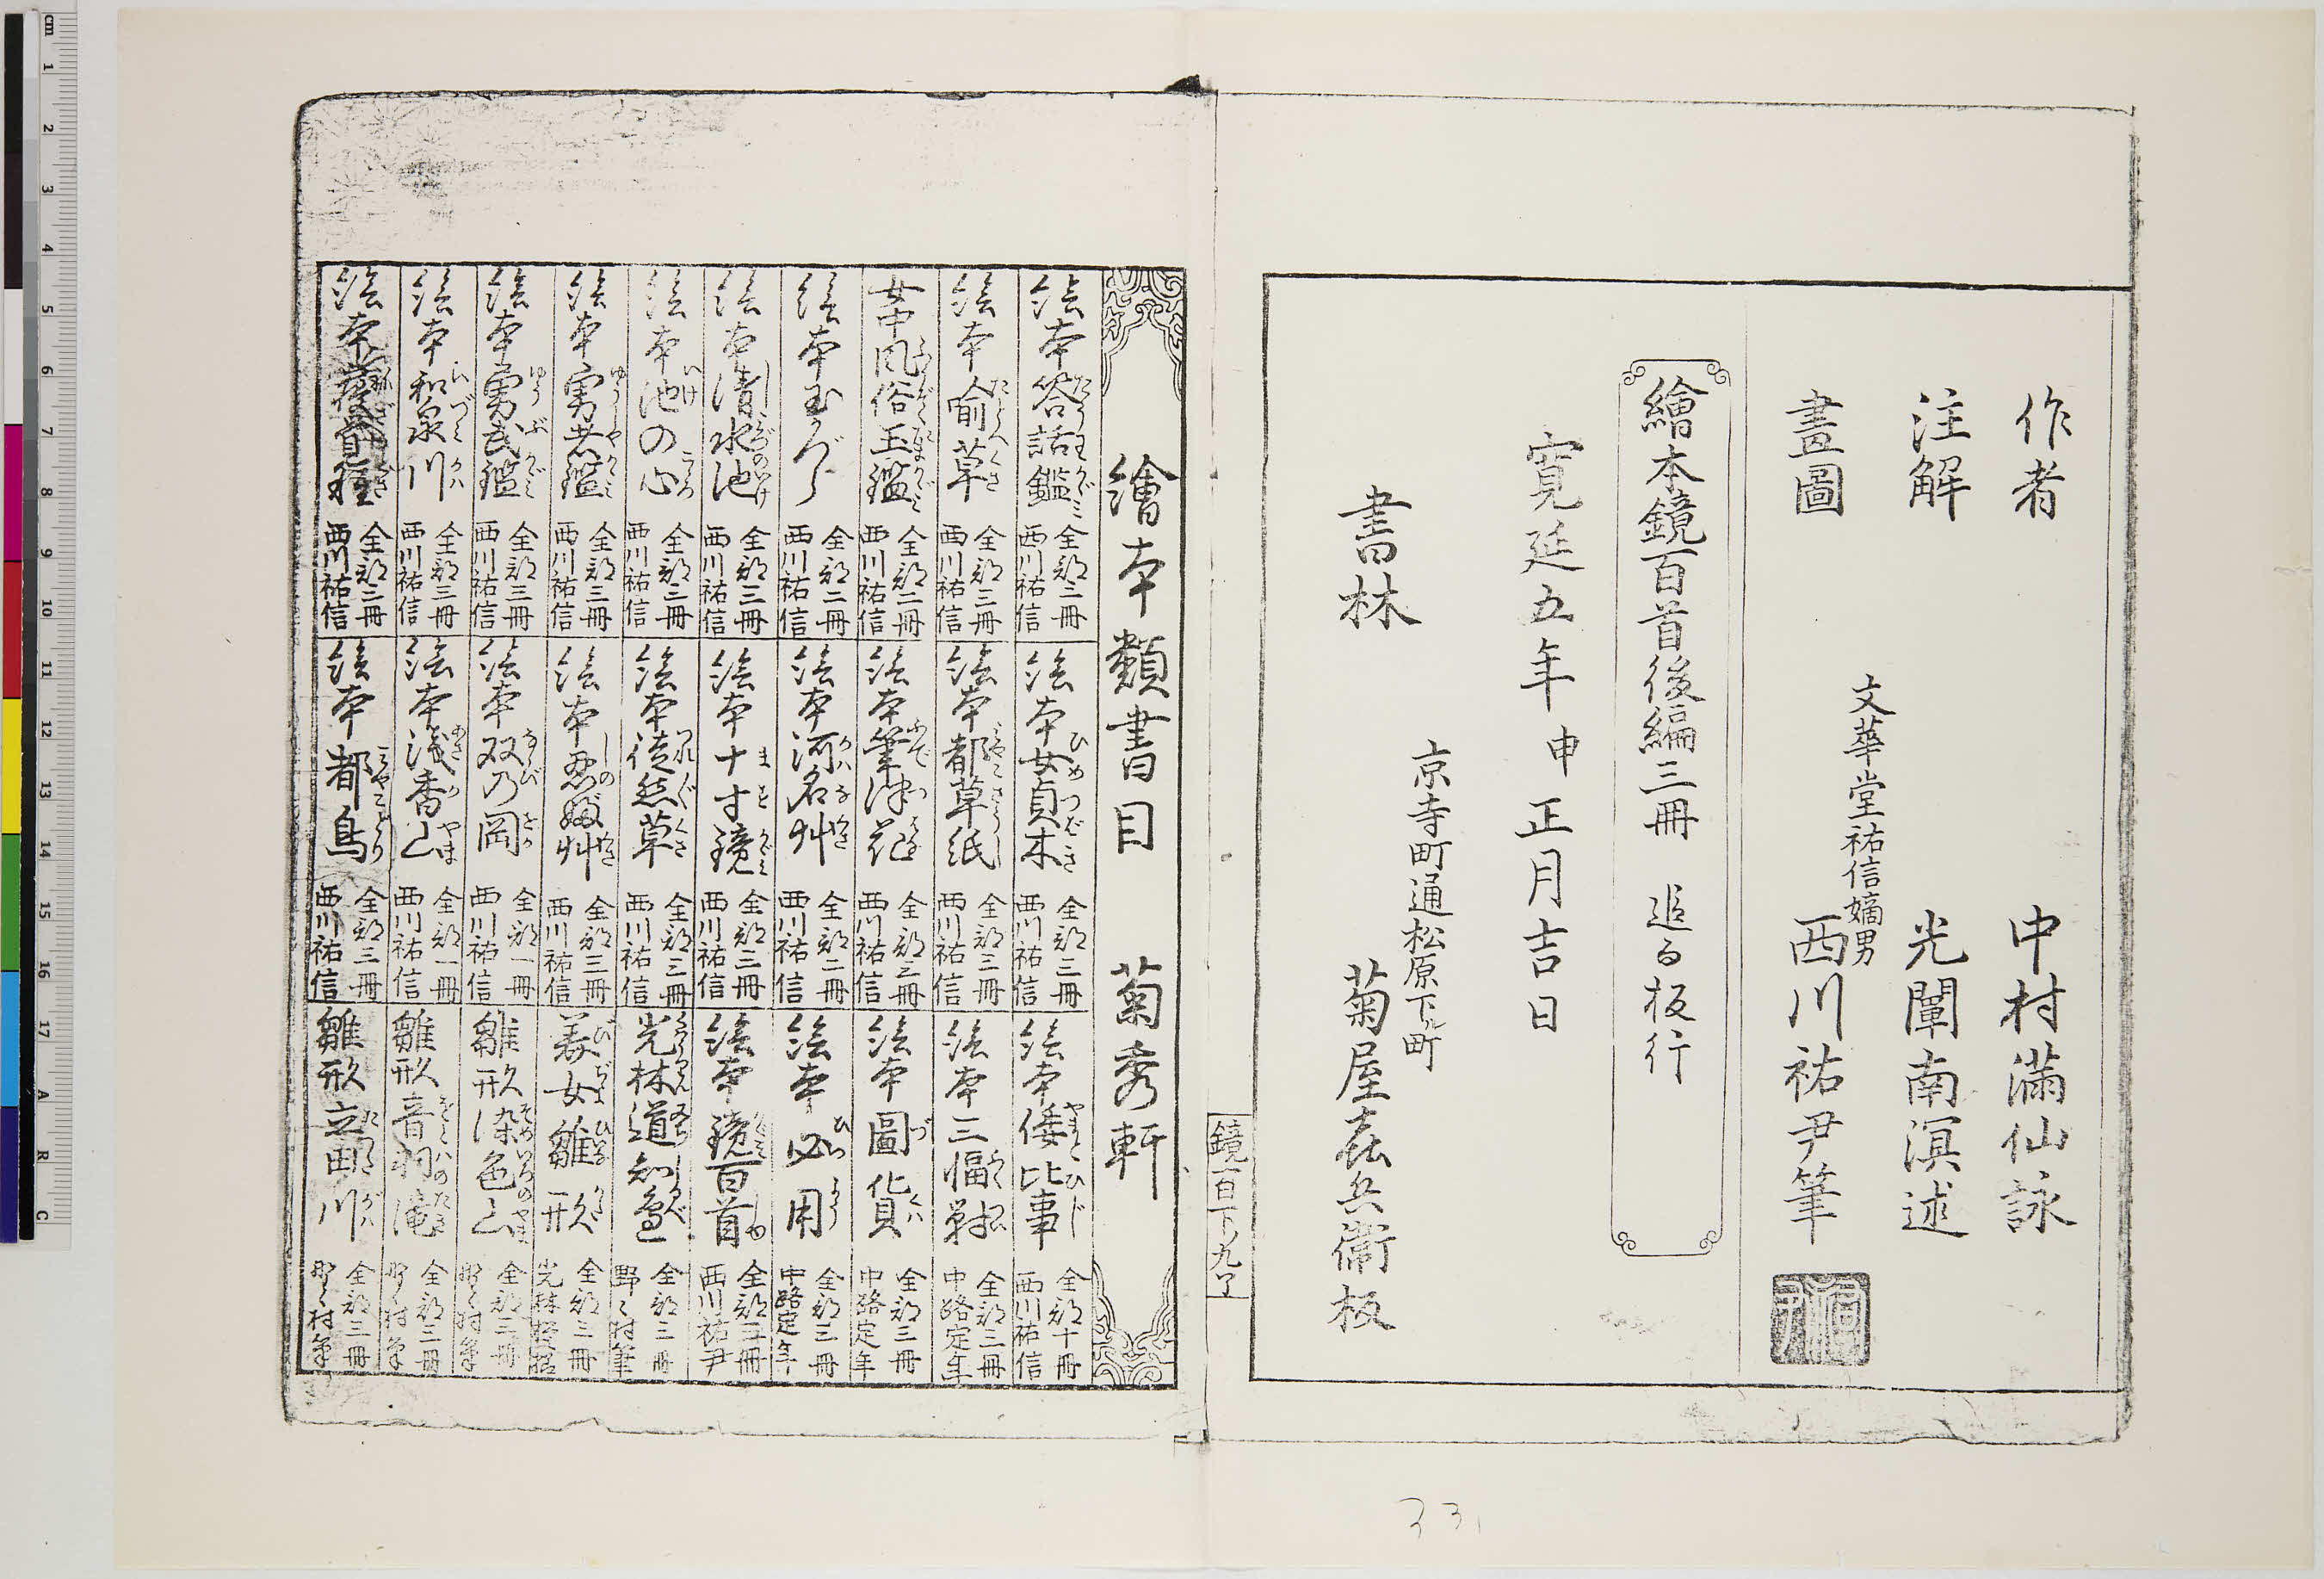 作者 中村滿仙詠
注解 光闡南溟述
畫圖 文華堂祐信嫡男 西川祐尹筆
繪本鏡百首後編三冊 追而板行
寛延五年申正月吉日
京寺町通松原下町
書林 菊屋喜兵衞板
鏡百下ノ九了
繪本類書目 菊秀軒
絵本答話鑑 全部三冊 西川祐信
絵本喩草 全部三冊 西川祐信
女中風俗玉鑑 全部二冊 西川祐信
絵本玉かづら 全部二冊 西川祐信
絵本清水池 全部三冊 西川祐信
絵本池の心 全部三冊 西川祐信
絵本勇者鑑 全部三冊 西川祐信
絵本勇武鑑 全部三冊 西川祐信
絵本和泉川 全部三冊 西川祐信
絵本 全部三冊 西川祐信
絵本女貞木 全部三冊 西川祐信
絵本都草紙 全部三冊 西川祐信
絵本筆津花 全部三冊 西川祐信
絵本河名艸 全部二冊 西川祐信
絵本十寸鏡 全部三冊 西川祐信
絵本徒然草 全部三冊 西川祐信
絵本忍婦艸 全部三冊 西川祐信
絵本双乃岡 全部一冊 西川祐信
絵本浅香山 全部一冊 西川祐信
絵本都鳥 全部三冊 西川祐信
絵本倭比事 全部十冊 西川祐信
絵本三幅對 全部三冊 中路定年
絵本圖貨 全部三冊 中路定年
絵本必用 全部三冊 中路定年
絵本鏡百首 全部三冊 西川祐尹
光林道知邉 全部三冊 野々村筆
美女雛形 全部三冊 光林
雛形染色山 全部三冊 野々村筆
雛形音羽滝 全部三冊 野々村筆
雛形立田川 全部三冊 野々村筆
33
cm 1 2 3 4 5 6 7 8 9 10 11 12 13 14 15 16 17 A R C